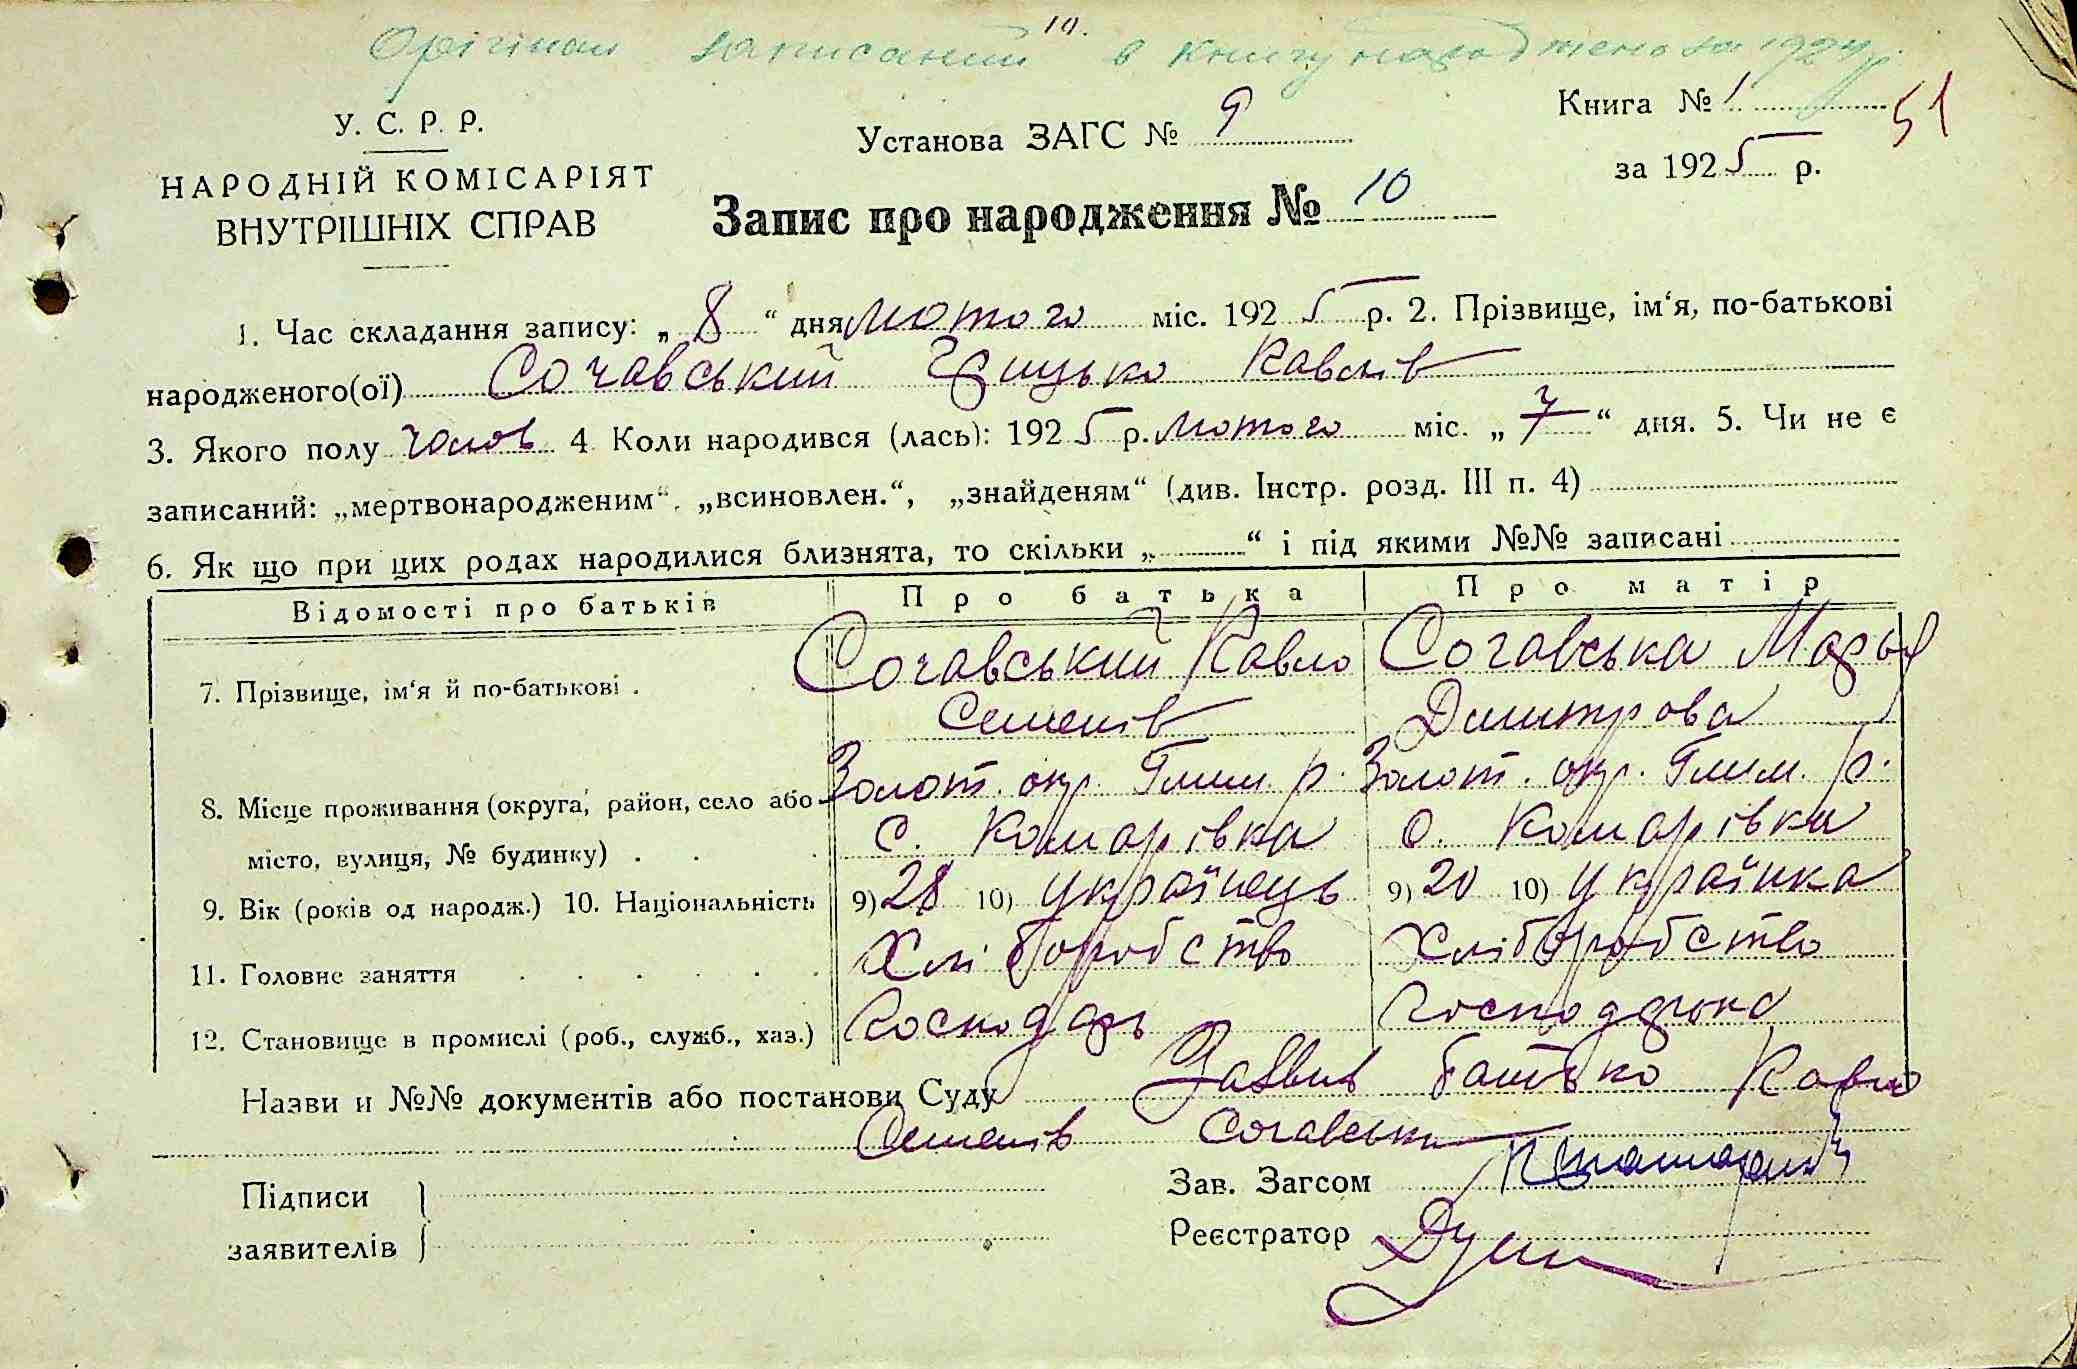 14.
Орігінал записаний в книгу народжено за 1924 р.
У. С. Р. Р.
НАРОДНІЙ КОМІСАРІЯТ
ВНУТРІШНІХ СПРАВ
Установа ЗАГС № 9
Книга № 1
51
за 1925 р.
Запис про народження № 10
1. Час складання запису: „ 8 “ дня лютого міс. 1925 р. 2. Прізвище, ім‘я, по-батькові
народженого(ої) Сочавський Грицько Павлів
3. Якого полу чолов 4 Коли народився (лась): 1925 р. лютого міс. „ 7 “ дня. 5. Чи не є
записаний: „мертвонародженим“, „всиновлен.“, „знайденям“ (див. Інстр. розд. III п. 4)
6. Як що при цих родах народилися близнята, то скільки „ “ і під якими №№ записані
Відомості про батьків Про батька Про матір
7. Прізвище, ім‘я й по-батькові . Сочавський Павло Сочавська Марья
Семенів Димитрова
8. Місце проживання (округа, район, село або Золот. окр. Гелм. р. Золот. окр. Гелм. р.
місто, вулиця, № будинку) . . . с. Комарівка с. Комарівка
9. Вік (років од народж.) 10. Національність 9) 28 10) Українець 9) 20 10) Українка
11. Головне заняття . . . . . Хліборобство Хліборобство
12. Становище в промислі (роб., служб., хаз.) Господарь Господарька
Назви и №№ документів або постанови Суду Заявив батько Павло
Семенів Сочавськи
Підписи
заявителів
Зав. Загсом
Реєстратор